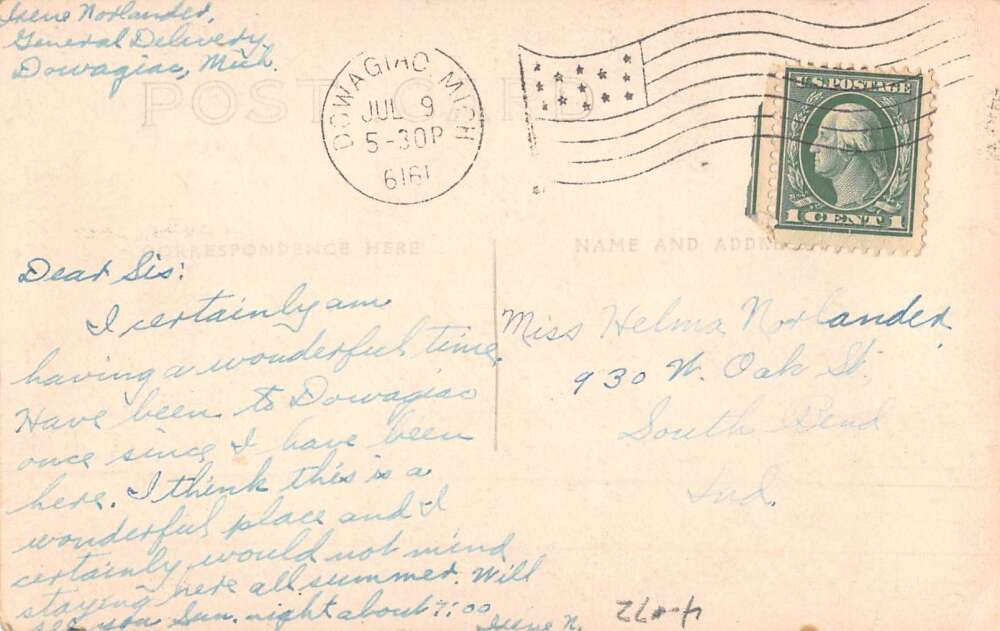 Irene Norlander,
General Delivery,
Dowagiac, Mich.
POST CARD
DOWAGIAC MICH
JUL 9
5-30P
1919
U.S. POSTAGE
1 CENT 1
CORRESPONDENCE HERE
NAME AND ADDRE
Dear Sis:
I certainly am
having a wonderful time.
Have been to Dowagiac
once since I have been
here. I think this is a
wonderful place and I
certainly would not mind
staying here all summer. Will
see you Sun. night about 7:00
Irene N.
Miss Helma Norlander,
930 W. Oak St.
South Bend
Ind.